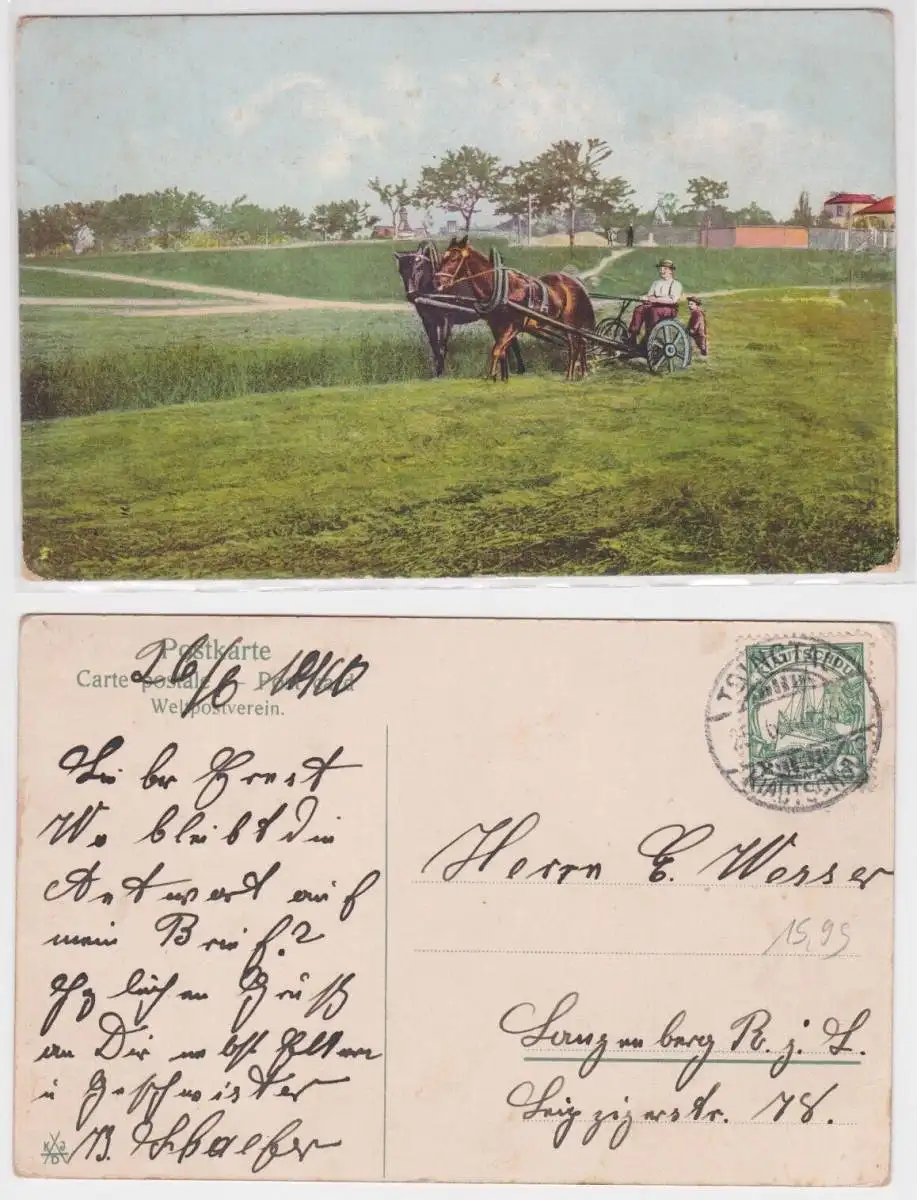 Postkarte
Carte postale
Weltpostverein.
26/6 1910
Lieber Ernst
Wo bleibt die
Antwort auf
mein Brief?
Hzlichen Gruß
an Dir nebst Eltern
u Geschwister
B. Schaefer
TSINGTAU
KIAUTSCHOU
Herrn E. Wesser
15,95
Langenberg R. j. L.
Leipzigerstr. 78.